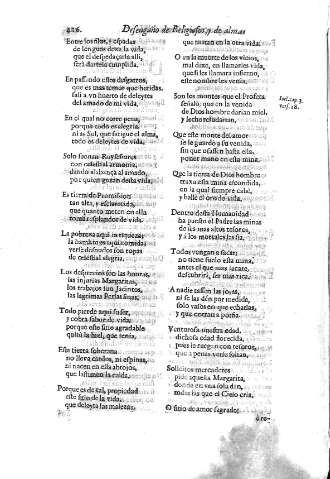 426. Desengaño de Religiosos, y de almas
Entre los filos, y espadas
de los que dexa la vida,
que el despedaçarla alli,
será dartela cumplida.
En passando estos disgustos,
que es mas temor que heridas,
sali a vn huerto de deleytes
del amado de mi vida.
En el qual no corre pena,
porque todo es alegria,
ni ay Sol, que fatigue el alma,
todo es deleytes de vida.
Solo suenan Ruyseñores
con celestial armonia,
dando al abança al amado,
por quien gozan desta vida.
Es tierra de Promission
tan alta, y esclarecida,
que quanto meten en ella
torna esplandor de vida.
La pobreza aqui es riqueza:
la hambre es aqui comida
verse desnudos son ropas
de celestial alegria.
Los desprecios son las honras,
las injurias Margaritas,
los trabajos son Jacintos,
las lagrimas Perlas finas.
Todo pierde aqui su ser,
y cobra sabor de vida:
porque este sitio agradable
quitó la hiel, que tenia.
Esta tierra soberana
no lleva cardos, ni espinas,
ni nacen en ella abrojos,
que lastimen la caida.
Porque es de tal propiedad
este sitio de la vida,
que deleyta las malezas,
que matan en la otra vida.
O vana muerte de los vicios,
mal dixe, en llamarles vida,
que si los llamara infierno,
este nombre les venia.
Son los montes que el Profeta
señaló; que en la venida
de Dios hombre darian miel,
y leche resudarian.
Que este monte del amor
se le guardó a su venida,
sin que ossassen hasta ella
poner mano en esta mina.
Que la tierra de Dios hombre
traxo esta mina escondida,
en la qual siempre cabé,
y hallé el oro de vida.
Dentro desta humanidad
ha puesto el Padre las minas
de sus mas altos tesoros,
y a los mortales las fia.
Todos vengan a sacar:
no tiene suelo esta mina,
antes el que mas sacare,
descubrirá, ser mas rica.
A nadie tassen las joyas,
ni se las dén por medida,
solo valen en que echarlas,
y que corran a porfia.
Venturosa nuestra edad,
dichosa edad florecida,
pues le ruegan con tesoros,
que apenas verse solian.
Solicitos mercaderes
pide aquella Margarita,
donde en vna sola dan,
todas las que el Cielo cria.
O sitio de amor sagrado
Joel. cap. 3.
vers. 18.